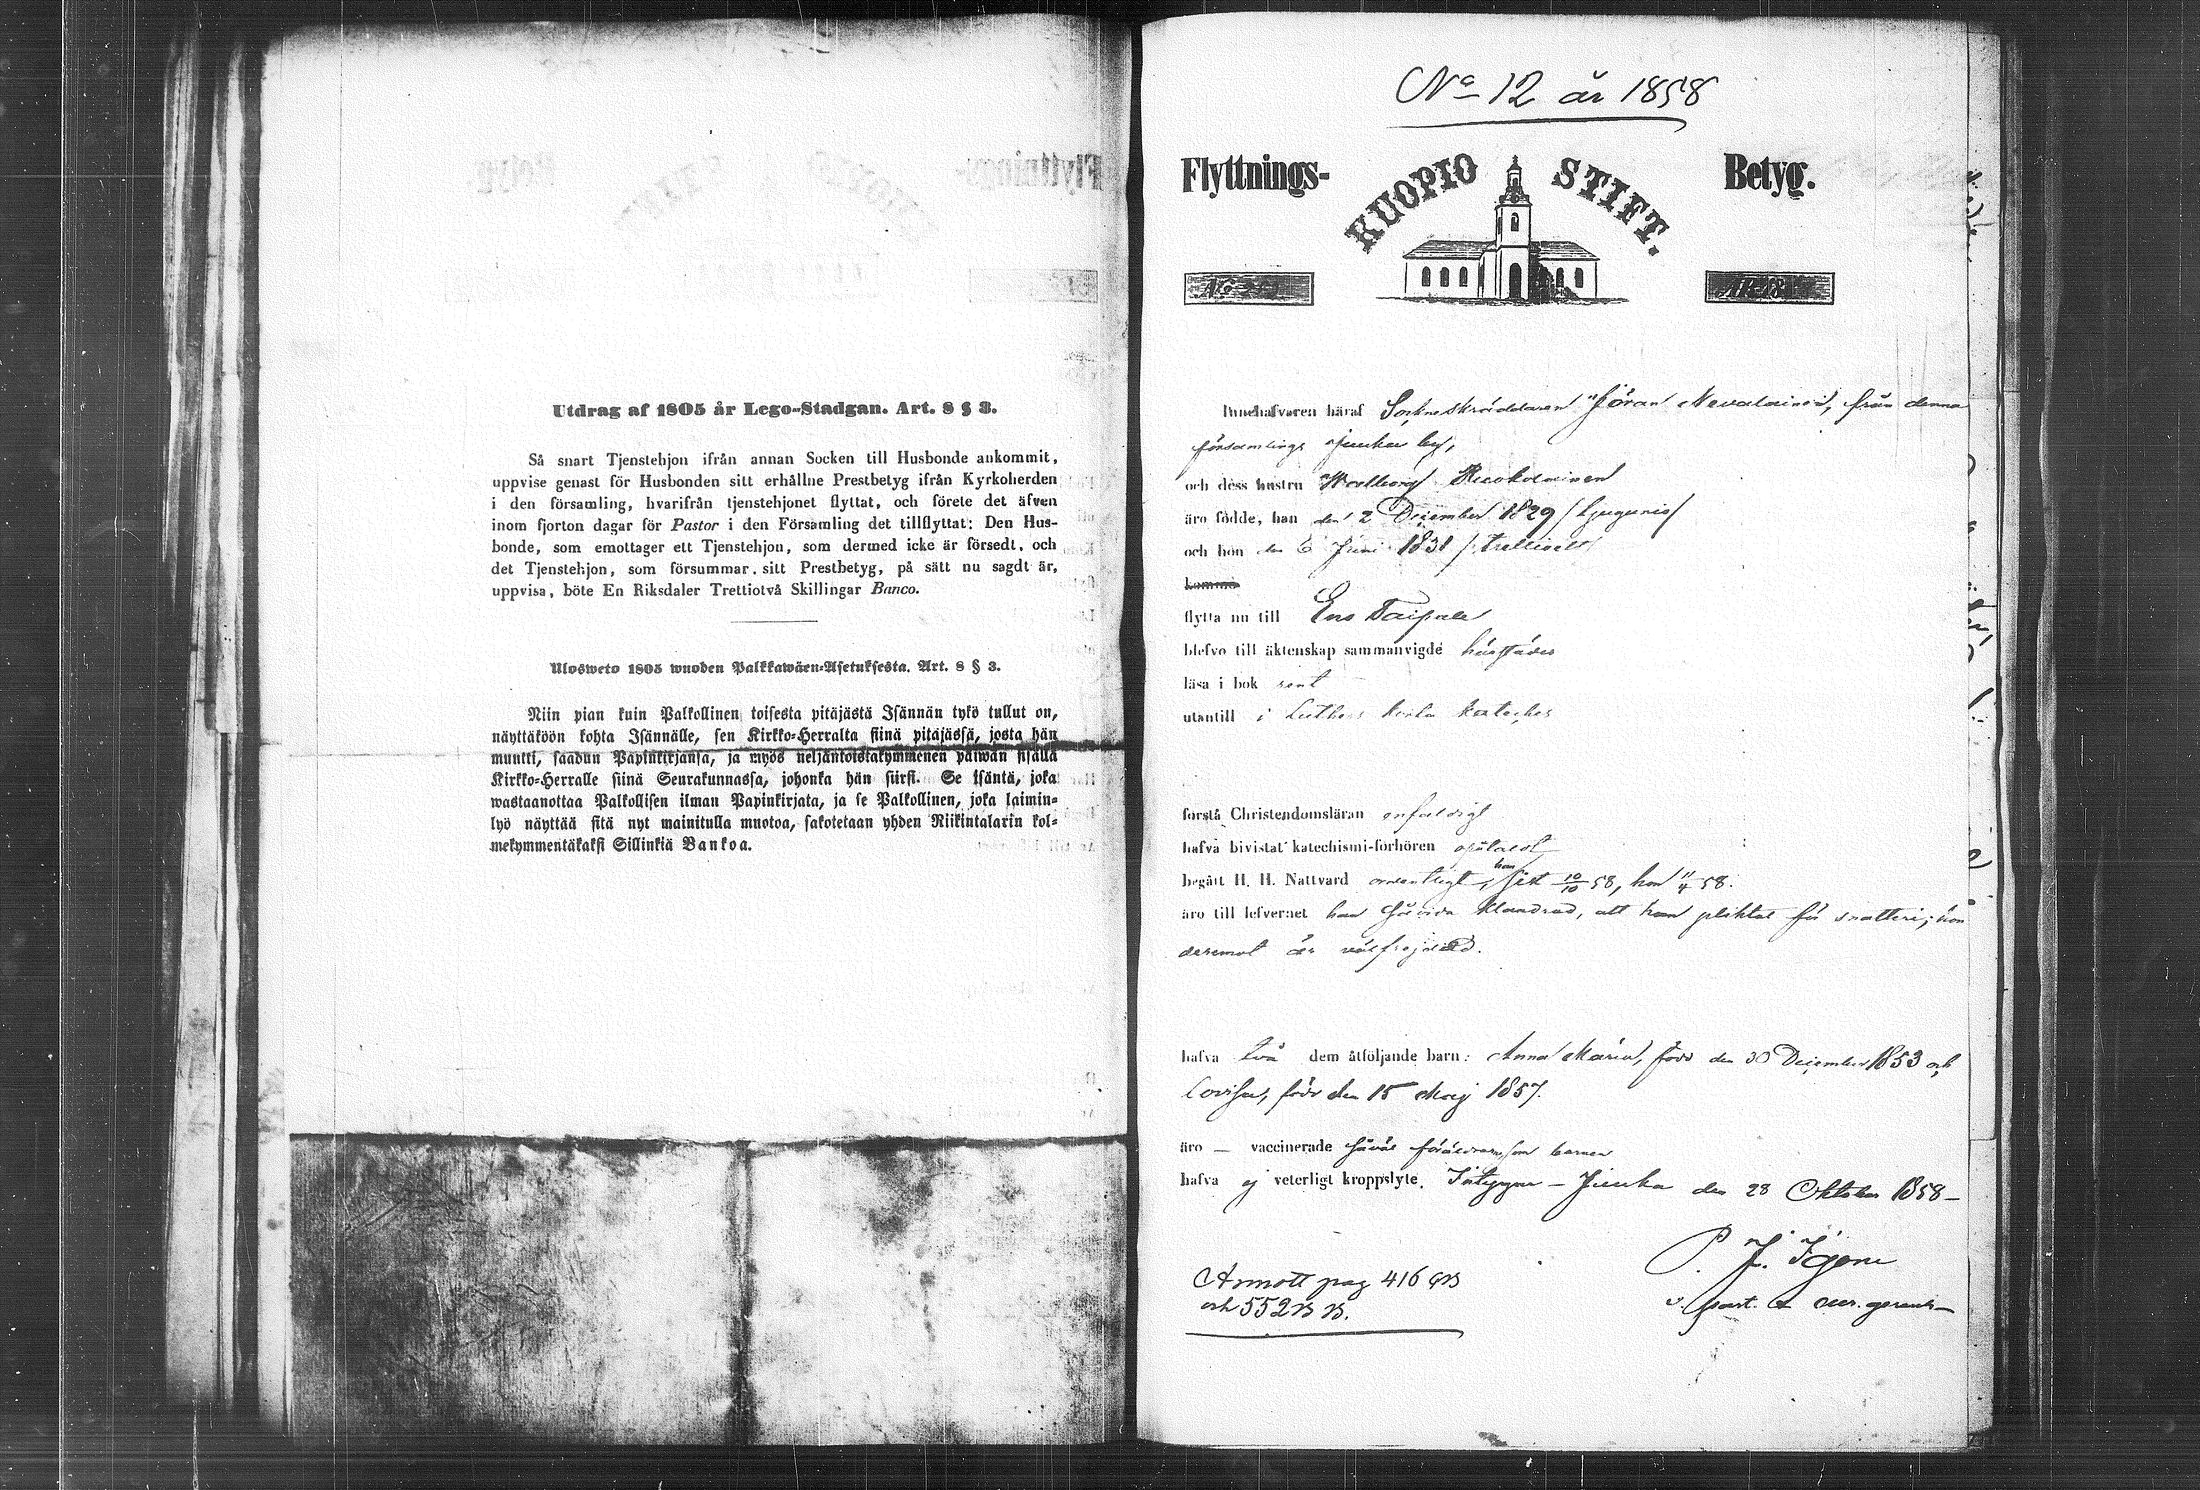 Utdrag af 1805 år Lego-Stadgan. Art. 8 § 3.
Så snart Tjenstehjon ifrån annan Socken till Husbonde ankommit,
uppvise genast för Husbonden sitt erhållne Prestbetyg ifrån Kyrkoherden
i den församling, hvarifrån tjenstehjonet flyttat, och förete det äfven
inom fjorton dagar för Pastor i den Församling det tillflyttat: Den Hus-
bonde, som emottager ett Tjenstehjon, som dermed icke är försedt, och
det Tjenstehjon, som försummar sitt Prestbetyg, på sätt nu sagdt är,
uppvisa, böte En Riksdaler Trettiotvå Skillingar Banco.
Ulosweto 1805 wuoden Palkkawäen-Asetuksesta. Art. 8 § 3.
Niin pian kuin Palkollinen toisesta pitäjästä Isännän tykö tullut on,
näyttäköön kohta Isännälle, sen Kirkko-Herralta siinä pitäjässä, josta hän
muutti, saadun Papinkirjansa, ja myös neljäntoistakymmenen päiwän sisällä
Kirkko-Herralle siinä Seurakunnassa, johonka hän siirsi. Se isäntä, joka
wastaanottaa Palkollisen ilman Papinkirjata, ja se Palkollinen, joka laimin-
lyö näyttää sitä nyt mainitulla muotoa, sakotetaan yhden Riikintalarin kol-
mekymmentäkaksi Sillinkiä Bankoa.
No 12 år 1858
Flyttnings- KUOPIO STIFT. Betyg.
No
ÅR 18
Innehafvaren häraf Sockneskräddaren Jöran Nevalainen, från denna
församlings Juuka by,
och dess hustru Walborg
äro födde, han den 2 December 1829
och hon den 6 Juni 1831
komme
flytta nu till Eno Taipale
blefvo till äktenskap sammanvigde härstädes
läsa i bok rent
utantill i Luthers lilla kateches
förstå Christendomsläran enfaldigt
hafva bivistat katechismi-förhören
begått H. H. Nattvard ordentligt, han sist 10/10 58, hon 11/4 58.
äro till lefvernet han såvida klandrad, att han pliktat för snatteri; hon
deremot är välfrejdad.
hafva två dem åtföljande barn: Anna Maria, född den 30 December 1853 och
Lovisa, född den 15 Maj 1857.
äro — vaccinerade såväl föräldrarne som barnen
hafva ej veterligt kroppslyte. Intygar — Juuka den 28 Oktober 1858 —
P. J.
v. past.
Annott pag 416
och 552